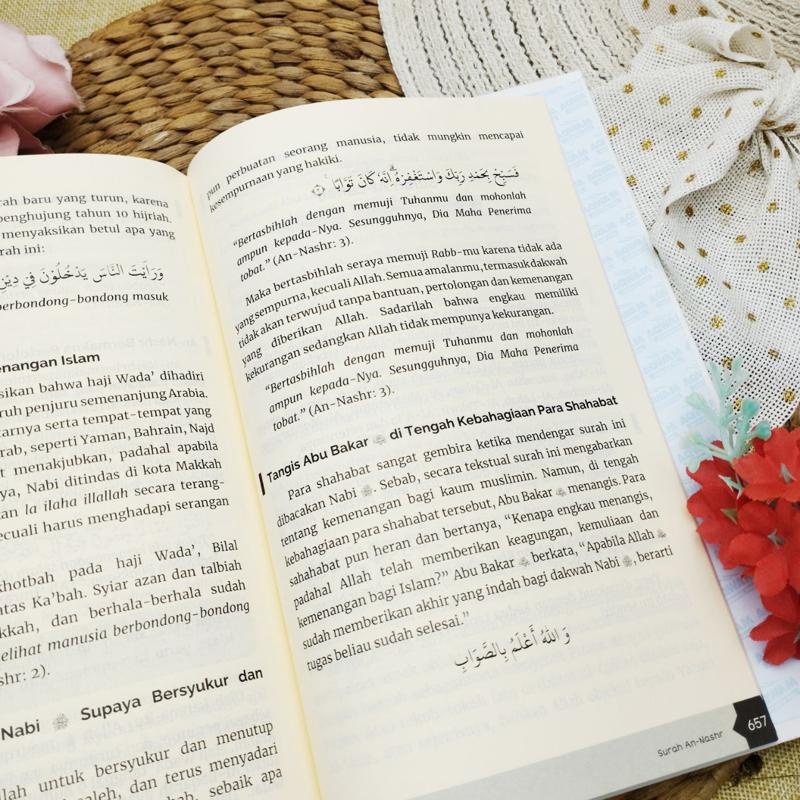 rah baru yang turun, karena
penghujung tahun 10 hijriah.
menyaksikan betul apa yang
rah ini:
وَرَأَيْتَ النَّاسَ يَدْخُلُونَ فِي دِيْنِ
berbondong-bondong masuk
enangan Islam
sikan bahwa haji Wada’ dihadiri
ruh penjuru semenanjung Arabia.
tarnya serta tempat-tempat yang
rab, seperti Yaman, Bahrain, Najd
t menakjubkan, padahal apabila
ya, Nabi ditindas di kota Makkah
kan la ilaha illallah secara terang-
ecuali harus menghadapi serangan
khotbah pada haji Wada’, Bilal
ntas Ka’bah. Syiar azan dan talbiah
kkah, dan berhala-berhala sudah
elihat manusia berbondong-bondong
shr: 2).
Nabi ﷺ Supaya Bersyukur dan
llah untuk bersyukur dan menutup
saleh, dan terus menyadari
sebaik apa
pun perbuatan seorang manusia, tidak mungkin mencapai
kesempurnaan yang hakiki.
فَسَبِّحْ بِحَمْدِ رَبِّكَ وَاسْتَغْفِرْهُ ۚ اِنَّهٗ كَانَ تَوَّابًا ۝
“Bertasbihlah dengan memuji Tuhanmu dan mohonlah
ampun kepada-Nya. Sesungguhnya, Dia Maha Penerima
tobat.” (An-Nashr: 3).
Maka bertasbihlah seraya memuji Rabb-mu karena tidak ada
yang sempurna, kecuali Allah. Semua amalanmu, termasuk dakwah
tidak akan terwujud tanpa bantuan, pertolongan dan kemenangan
yang diberikan Allah. Sadarilah bahwa engkau memiliki
kekurangan sedangkan Allah tidak mempunyai kekurangan.
“Bertasbihlah dengan memuji Tuhanmu dan mohonlah
ampun kepada-Nya. Sesungguhnya, Dia Maha Penerima
tobat.” (An-Nashr: 3).
Tangis Abu Bakar di Tengah Kebahagiaan Para Shahabat
Para shahabat sangat gembira ketika mendengar surah ini
dibacakan Nabi ﷺ. Sebab, secara tekstual surah ini mengabarkan
tentang kemenangan bagi kaum muslimin. Namun, di tengah
kebahagiaan para shahabat tersebut, Abu Bakar menangis. Para
shahabat pun heran dan bertanya, “Kenapa engkau menangis,
padahal Allah telah memberikan keagungan, kemuliaan dan
kemenangan bagi Islam?” Abu Bakar berkata, “Apabila Allah
sudah memberikan akhir yang indah bagi dakwah Nabi ﷺ, berarti
tugas beliau sudah selesai.”
وَ اللهُ أَعْلَمُ بِالصَّوَابِ
Surah An-Nashr 657